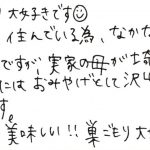 大好きです☺
住んでいる為、なかな
ですが、実家の母が埼
にはおみやげとして沢山
す。
美味しい!!巣ごもり大